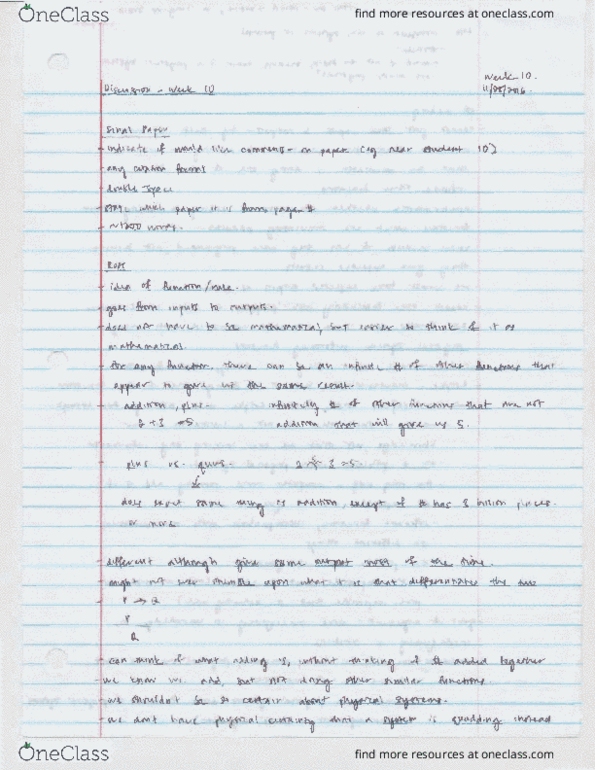 OneClass
find more resources at oneclass.com
Week 10.
Discussion - Week 10
11/28/2016
Final Paper
- indicate if would like comments - on paper near student ID
- any citation format
- double space
- which paper it is from, page #
- ~1200 words.
Rule
- idea of function/rule.
- goes from inputs to outputs.
- does not have to be mathematical, but easier to think of it as
mathematical.
- for any function, there can be an infinite # of other functions that
appear to give us the same result.
- addition, plus infinitely # of other functions that are not
2 + 3 = 5 addition that will give us 5.
- plus vs. quus. 2 3 = 5.
does exact same thing as addition, except if # has 3 billion places
or more
- different although give same output most of the time.
- might not ever stumble upon what it is that differentiates the two
- P → Q
P
Q
- can think of what adding is, without thinking of # added together
- we know we add, but not doing other similar functions.
- we shouldn't be so certain about physical systems.
- we don't have physical certainty that a system is quadding instead
OneClass
find more resources at oneclass.com